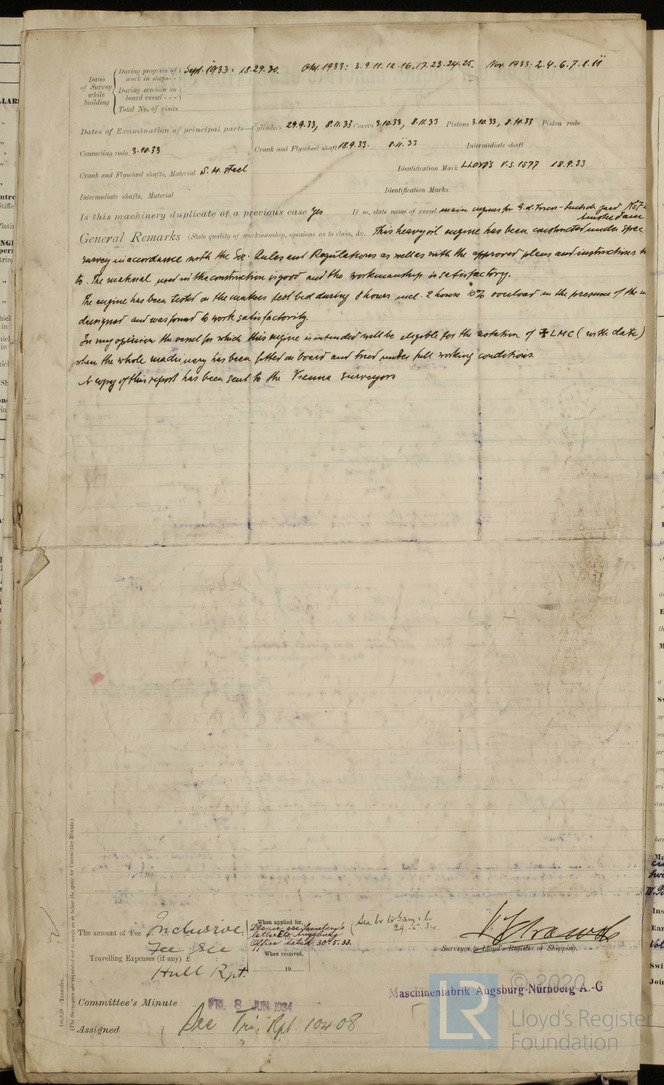 Dates of Survey while building
During progress of work in shops - -
Sept. 1933: 18.29.30. Okt. 1933: 3.9.11.12.16.17.23.24.25. Nov. 1933: 2.4.6.7.8.11
During erection on board vessel - - -
Total No. of visits
Dates of Examination of principal parts—Cylinders 29.9.33, 8.11.33 Covers 3.10.33, 8.11.33 Pistons 3.10.33, 8.11.33 Piston rods
Connecting rods 3.10.33 Crank and Flywheel shaft 18.9.33. 8.11.33 Intermediate shaft
Crank and Flywheel shafts, Material S. M. Steel Identification Mark LLOYD'S 18.9.33
Intermediate shafts, Material Identification Marks
Is this machinery duplicate of a previous case Yes If so, state name of vessel main engines for
General Remarks (State quality of workmanship, opinions as to class, &c. This heavy oil engine has been constructed under Spec
survey in accordance with the Soc. Rules and Regulations as well as with the approved plans and instructions
to. The material used in the construction is good and the workmanship is satisfactory.
The engine has been tested on the makers test bed during 8 hours incl. 2 hours 10% overload in the presence of the
and was found to work satisfactorily.
In my opinion the vessel for which this engine is intended will be eligible for the notation of ✠LMC (with date)
when the whole machinery has been fitted on board and tried under full working conditions.
A copy of this report has been sent to the Vienna Surveyors
The amount of Fee Inclusive
Fee See
Travelling Expenses (if any) £
Hull Rpt.
When applied for,
Please see Secretary's
letter to Augsburg
Office dated 30.5.33.
When received,
19
Surveyor to Lloyd's Register of Shipping.
Maschinenfabrik Augsburg-Nürnberg A.-G
Committee's Minute FRI. 8 JUN 1934
Assigned See Tri. Rpt. 10408
© 2020
LR
Lloyd's Register
Foundation